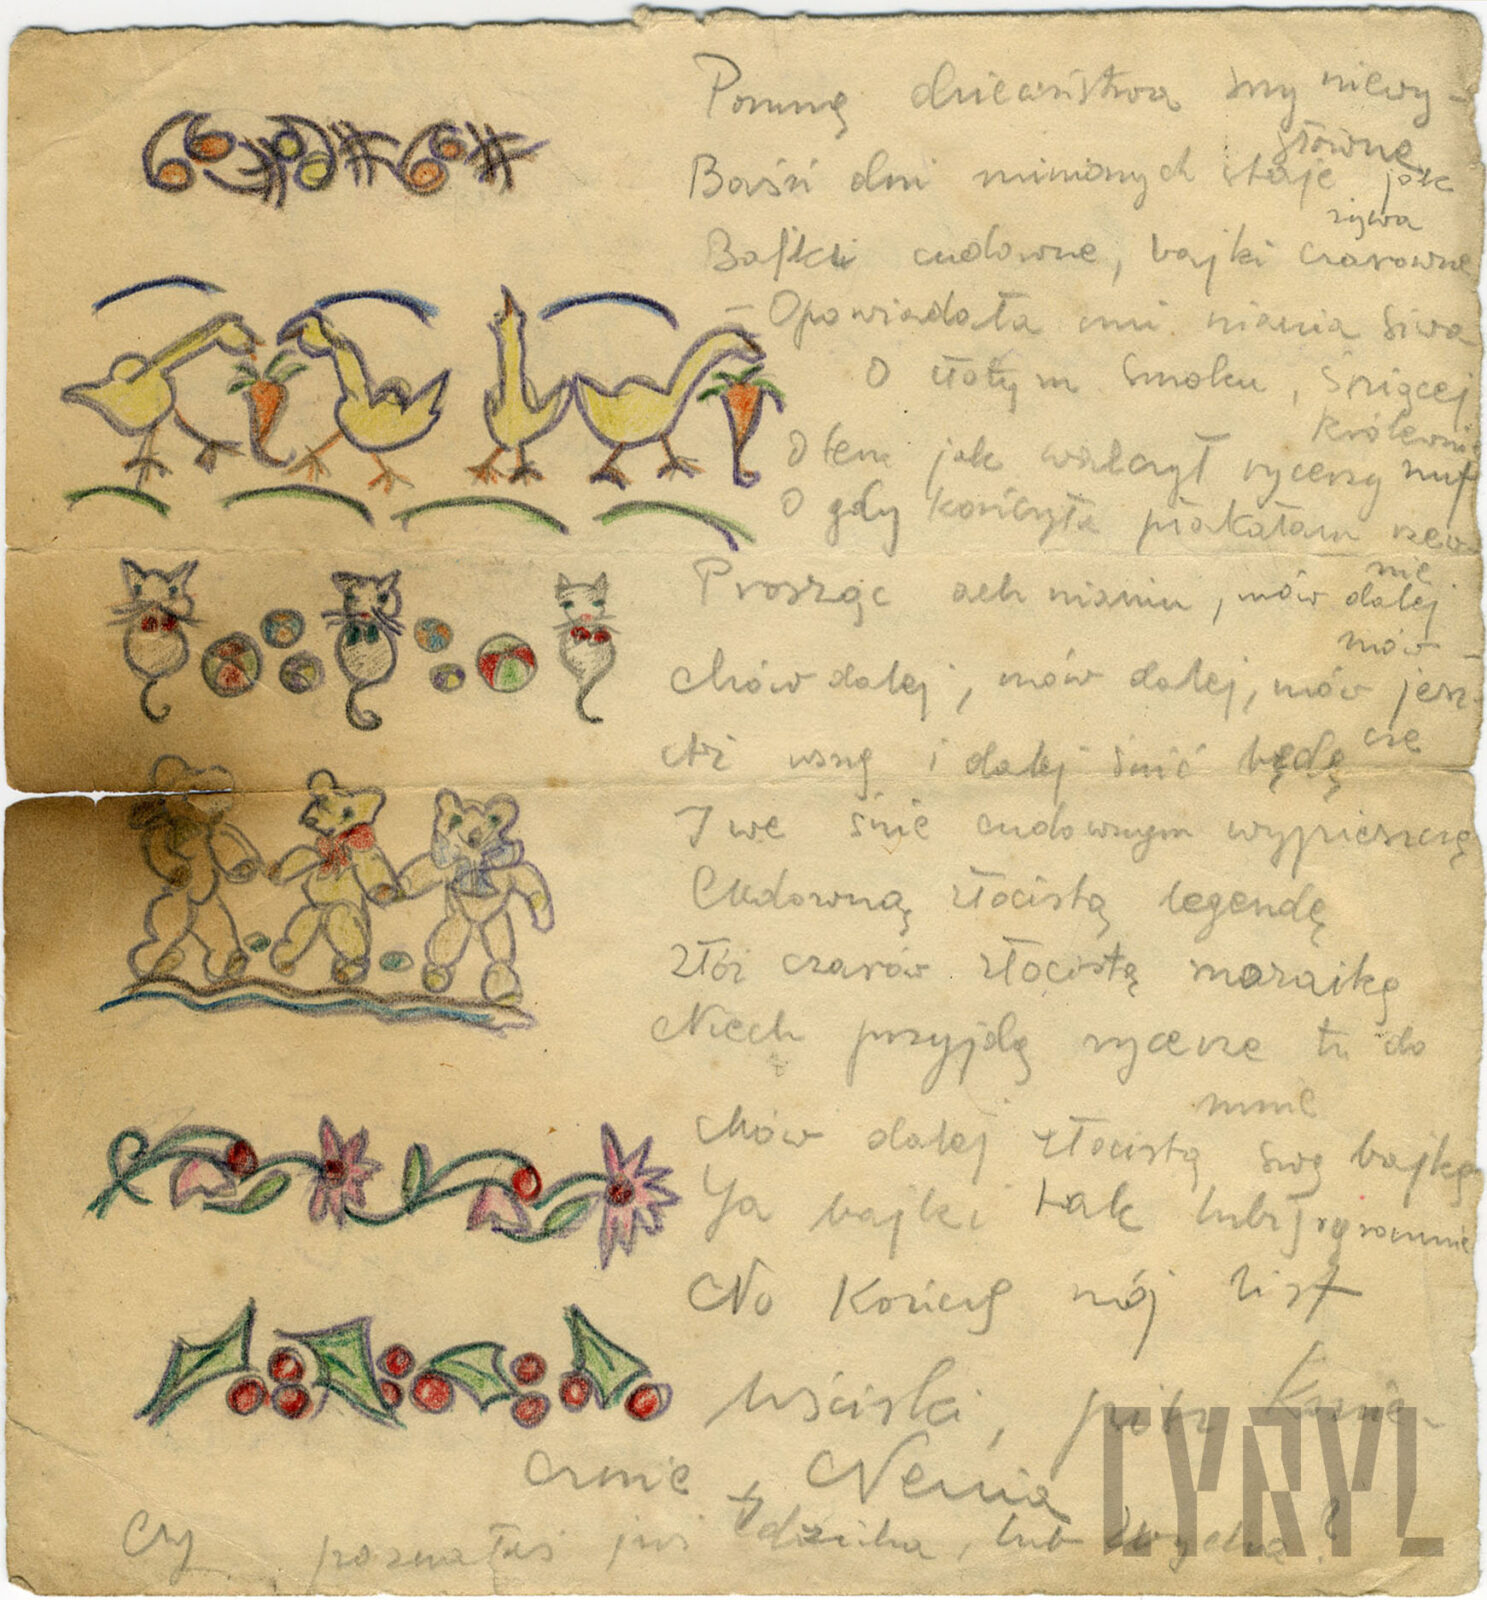 Pomnę dzieciństwa sny niewy-
słowne
Baśń dni minionych staje jak
żywa
Bajki cudowne, bajki czarowne
- Opowiadała mi niania siwa
O złotym smoku, śpiącej
królewnie
O tem jak walczył rycerzy huf
O gdy kończyła płakałam rzew-
nie
Prosząc ach nianiu, mów dalej
mów -
Mów dalej, mów dalej, mów jesz-
cze
Aż usnę i dalej śnić będę
I we śnie cudownym wypieszczę
Cudowną złocistą legendę
Złóż czarów złocistą mozaikę
Niech przyjdą rycerze tu do
mnie
Mów dalej złocistą swą bajkę
Ja bajki tak lubię ogromnie
No kończę mój list
uściski, pisz konie-
cznie
Nenia
Czy poznałaś już
lub
CYRYL